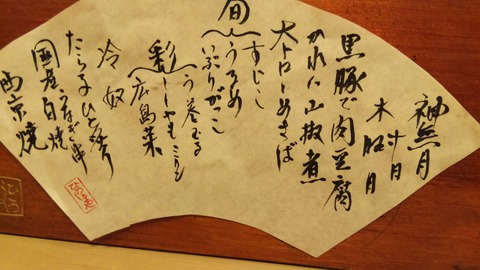 神無月
廿日
木曜日
黒豚で肉豆腐
かれい山椒煮
大トロしめさば
旬
すじこ
うるめ
いぶりがっこ
彩
う巻玉子
ししゃも
広島菜
冷奴
たらこ
国産白焼
うなぎ串
西京焼